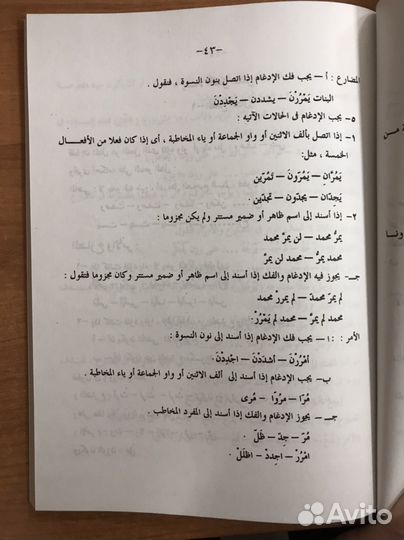 -٤٣-
المضارع : أ – يجب فك الإدغام إذا اتصل بنون النسوة ، فنقول .
البنات يَمْرُرْنَ – يشددن – يَجْدِدْنَ
٥– يجب الإدغام فى الحالات الآتيه :
١– إذا اتصل بألف الاثنين أو واو الجماعة أو ياء المخاطبة ، أى إذا كان فعلا من الأفعـــال
الخمسة ، مثل:
يَمُرَّانِ – يَمُرّونَ – تَمُرّين
يَجِدّان – يجدّون – تجدّين .
٢– إذا أسند إلى اسم ظاهر أو ضمير مستتر ولم يكن مجزوما
يمرُّ محمد – لن يمرَّ محمد
محمد يمرُّ – محمد لن يمرَّ
جـ– يجوز فيه الإدغام والفك إذا أسند إلى اسم ظاهر أو ضمير مستتر وكان مجزوما فتقول :
لم يمرَّ محمد – لم يمررْ محمد
محمد لم يمرَّ – محمد لم يَمْرُرْ.
الأمر : ١– يجب فك الإدغام إذا أسند إلى نون النسوة :
امْرُرْنَ – اشدُدْنَ – اجْدِدْنَ.
ب– يجب الإدغام إذا أسند إلى ألف الاثنين أو واو الجماعة أو ياء المخاطبة .
مُرّا – مرّوا – مُرى
جـ– يجوز الإدغام والفك إذا أسند إلى المفرد المخاطب .
مُرّ – جِدّ – ظَلّ .
امْرُرْ – اجدِدْ – اظلَلْ .
Avito